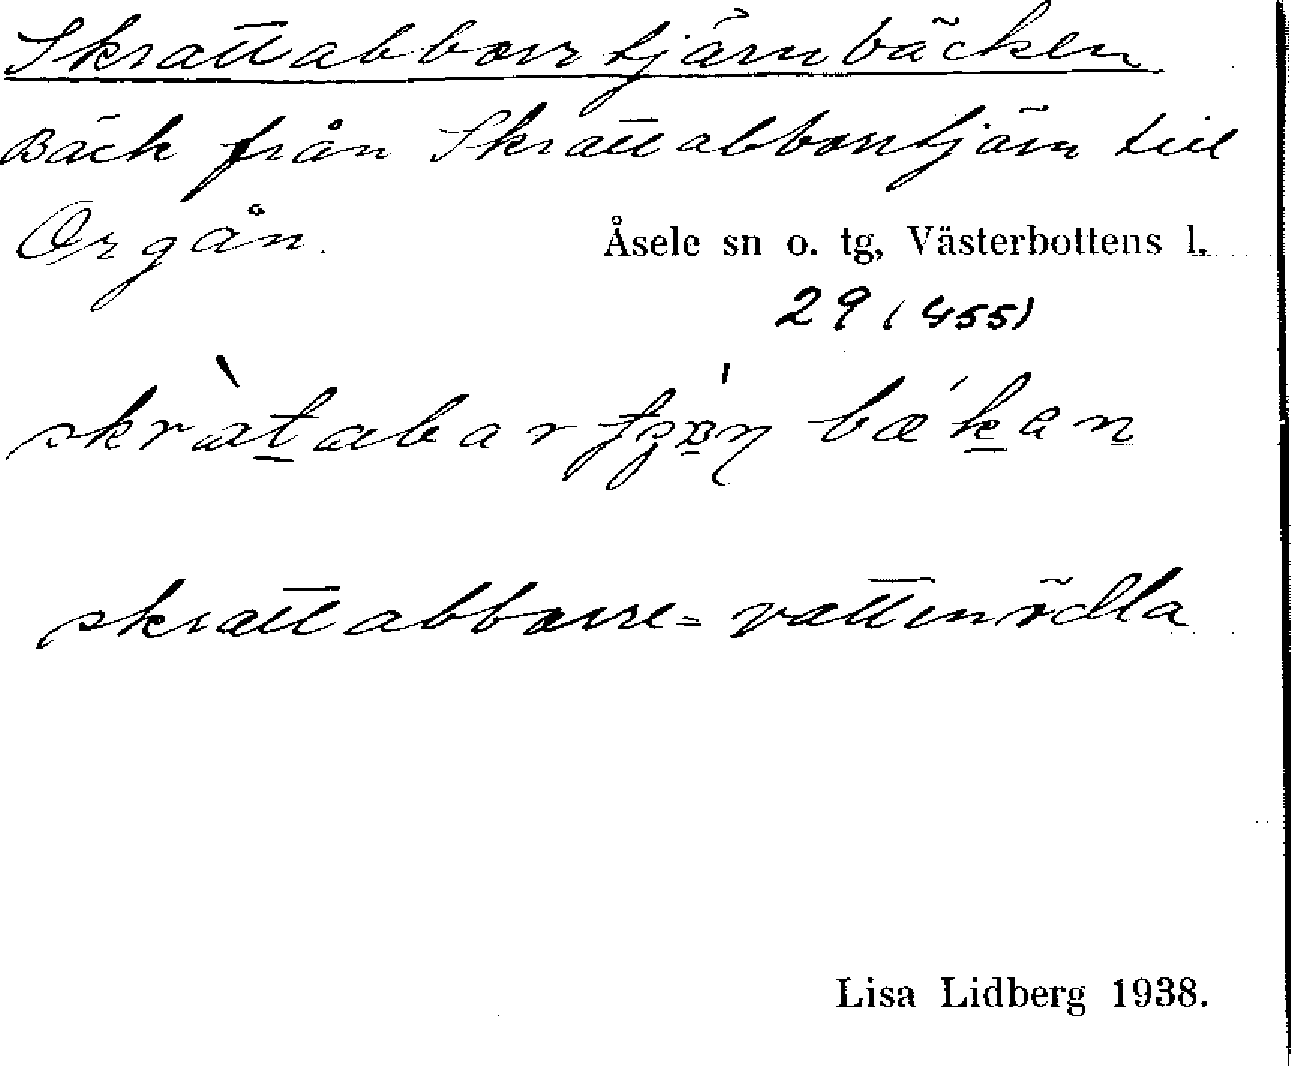 Skrattabborrtjärnbäcken
Bäck från Skrattabborrtjärn till
Orgån.
Åsele sn o. tg, Västerbottens l.
29 (455)
skrattabborre = vattenödla
Lisa Lidberg 1938.